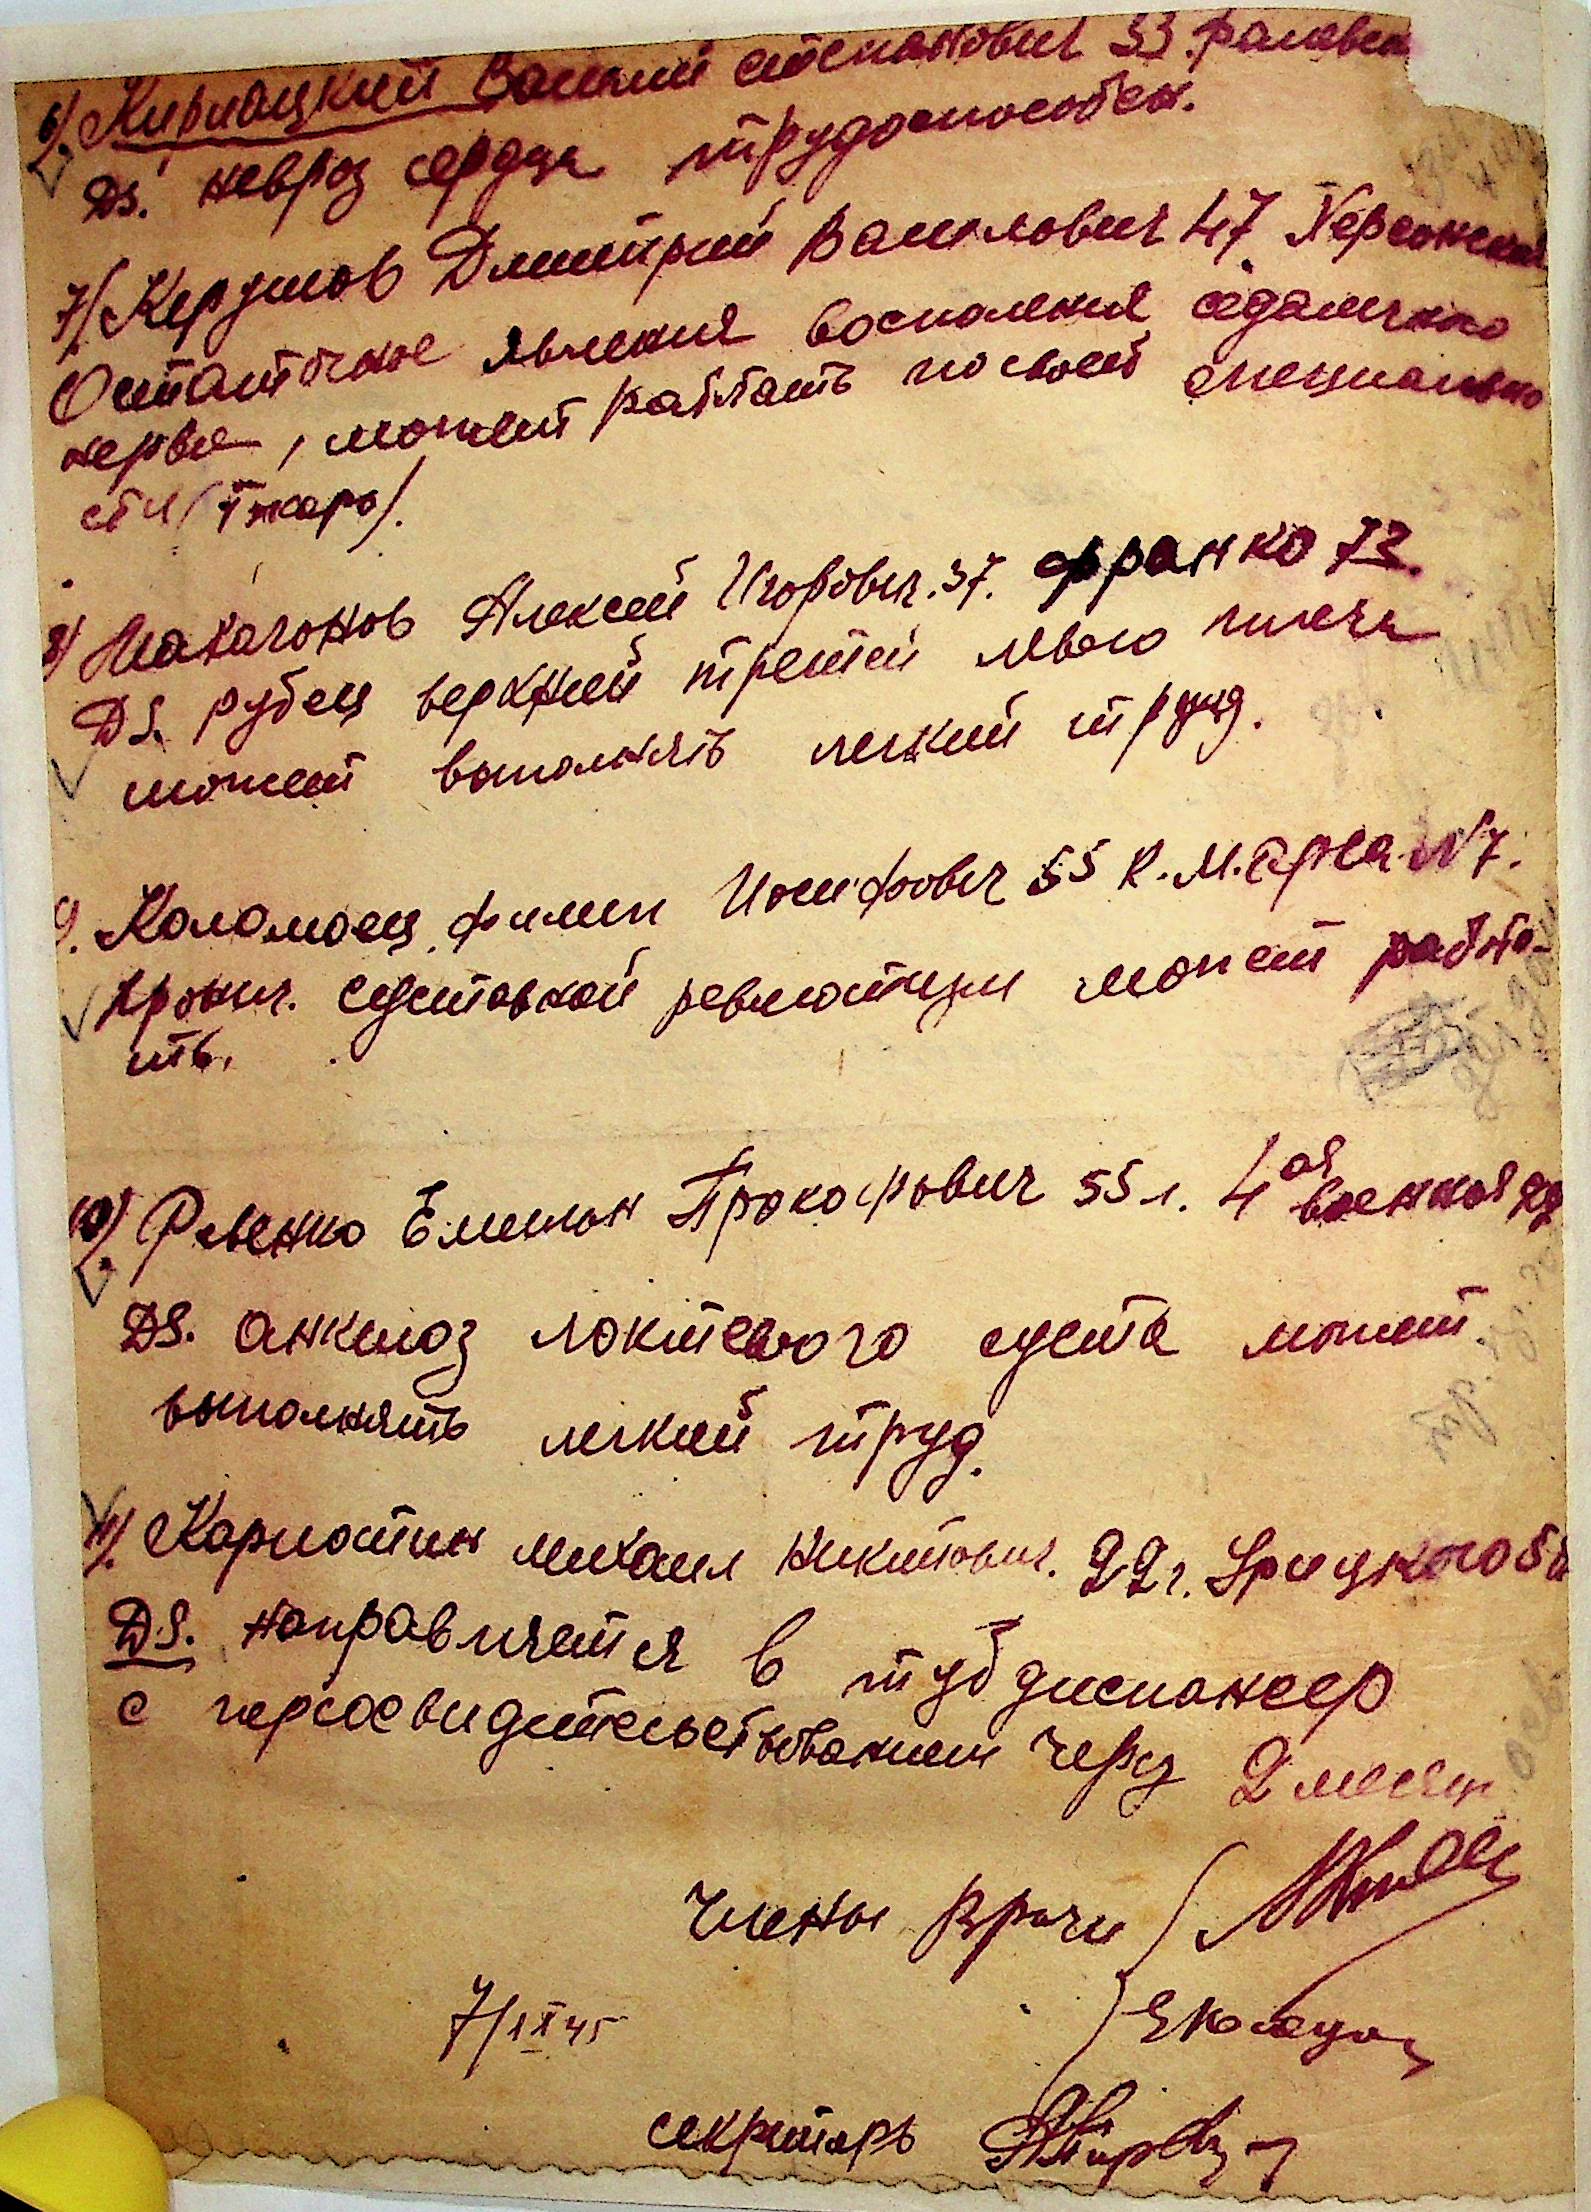 6/. Кирпацкий Василий Степанович 53.
DS. невроз сердца трудоспособен.
7/. Керушов Дмитрий Васильович 47. Херсонская
Остаточные явления воспаления седалечного
нерва, может работать по своей специально
сти /токарь/.
8/ Макагонов Алексей Игорович. 37. Франко 73.
DS. рубец верхней третей левого плеча
может выполнять легкий труд.
9. Коломоец Филип Иосифович 55 К. Маркса N 7.
Хронич. суставной ревматизм может работа-
ть.
10/. Ревенко Емельян Прокофович 55 л. 4ая военная
DS. Анкилоз локтевого суства может
выполнять легкий труд.
11/. Карпотин Михаил Никитович. 22 г. Урицкого
DS. направляется в тубдиспансер
с переосвидетельствованием через 2 месяц
Члены врачи
7/IX 45
секретарь